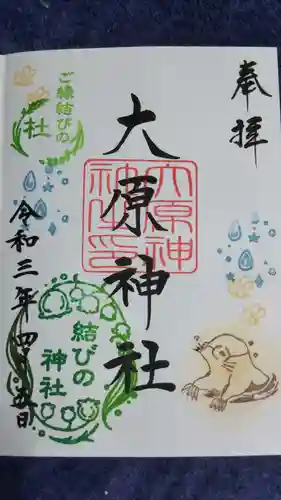 奉拝
大原神社
大原神社印
ご縁結びの
社
結びの
神社
令和三年四月